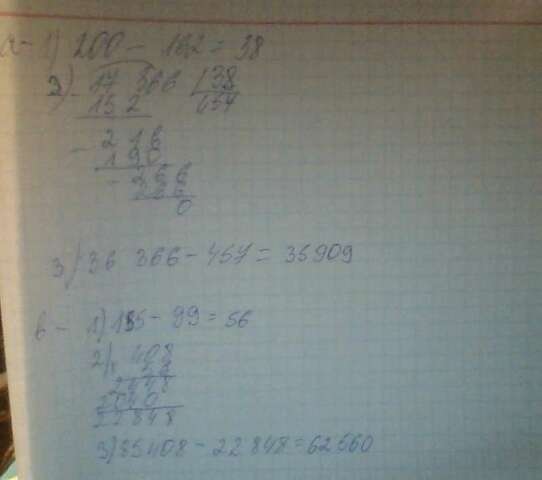 a - 1) 200 - 162 = 38
2) - 17 366 | 38
152 457
- 216
190
- 266
266
0
3) 36 366 - 457 = 35909
b - 1) 155 - 99 = 56
2) x 408
56
2448
2040
22848
3) 85408 - 22848 = 62560